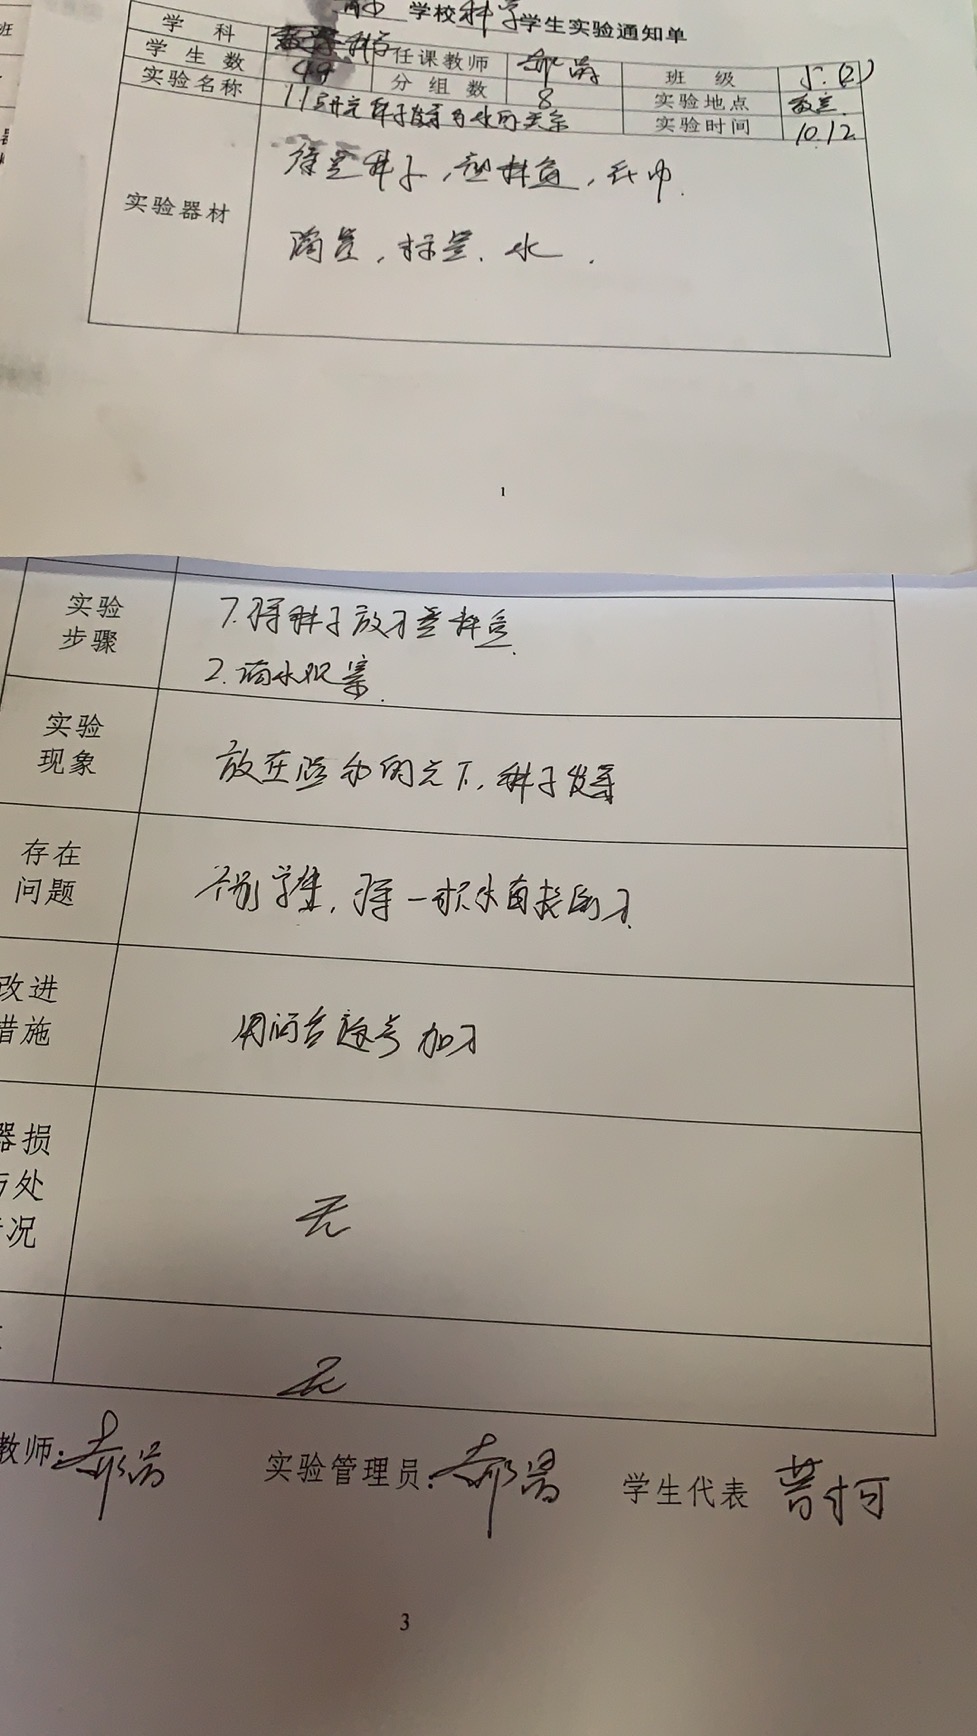 学校科学学生实验通知单
学 科 科学 任课教师 班 级 5.(2)
学 生 数 44 分 组 数 8 实验地点 教室
实验名称 研究种子发芽与水的关系 实验时间 10.12
实验器材 绿豆种子,塑料盒,纸巾.
滴管,标签.水.
1
实验
步骤
1.将种子放入塑料盒.
2.滴水观察.
实验
现象
放在湿布的之下,种子发芽
存在
问题
个别学生,将一杯水直接倒入.
改进
措施
用滴管逐号加入
器损
与处
情况
无
无
教师: 实验管理员: 学生代表
3